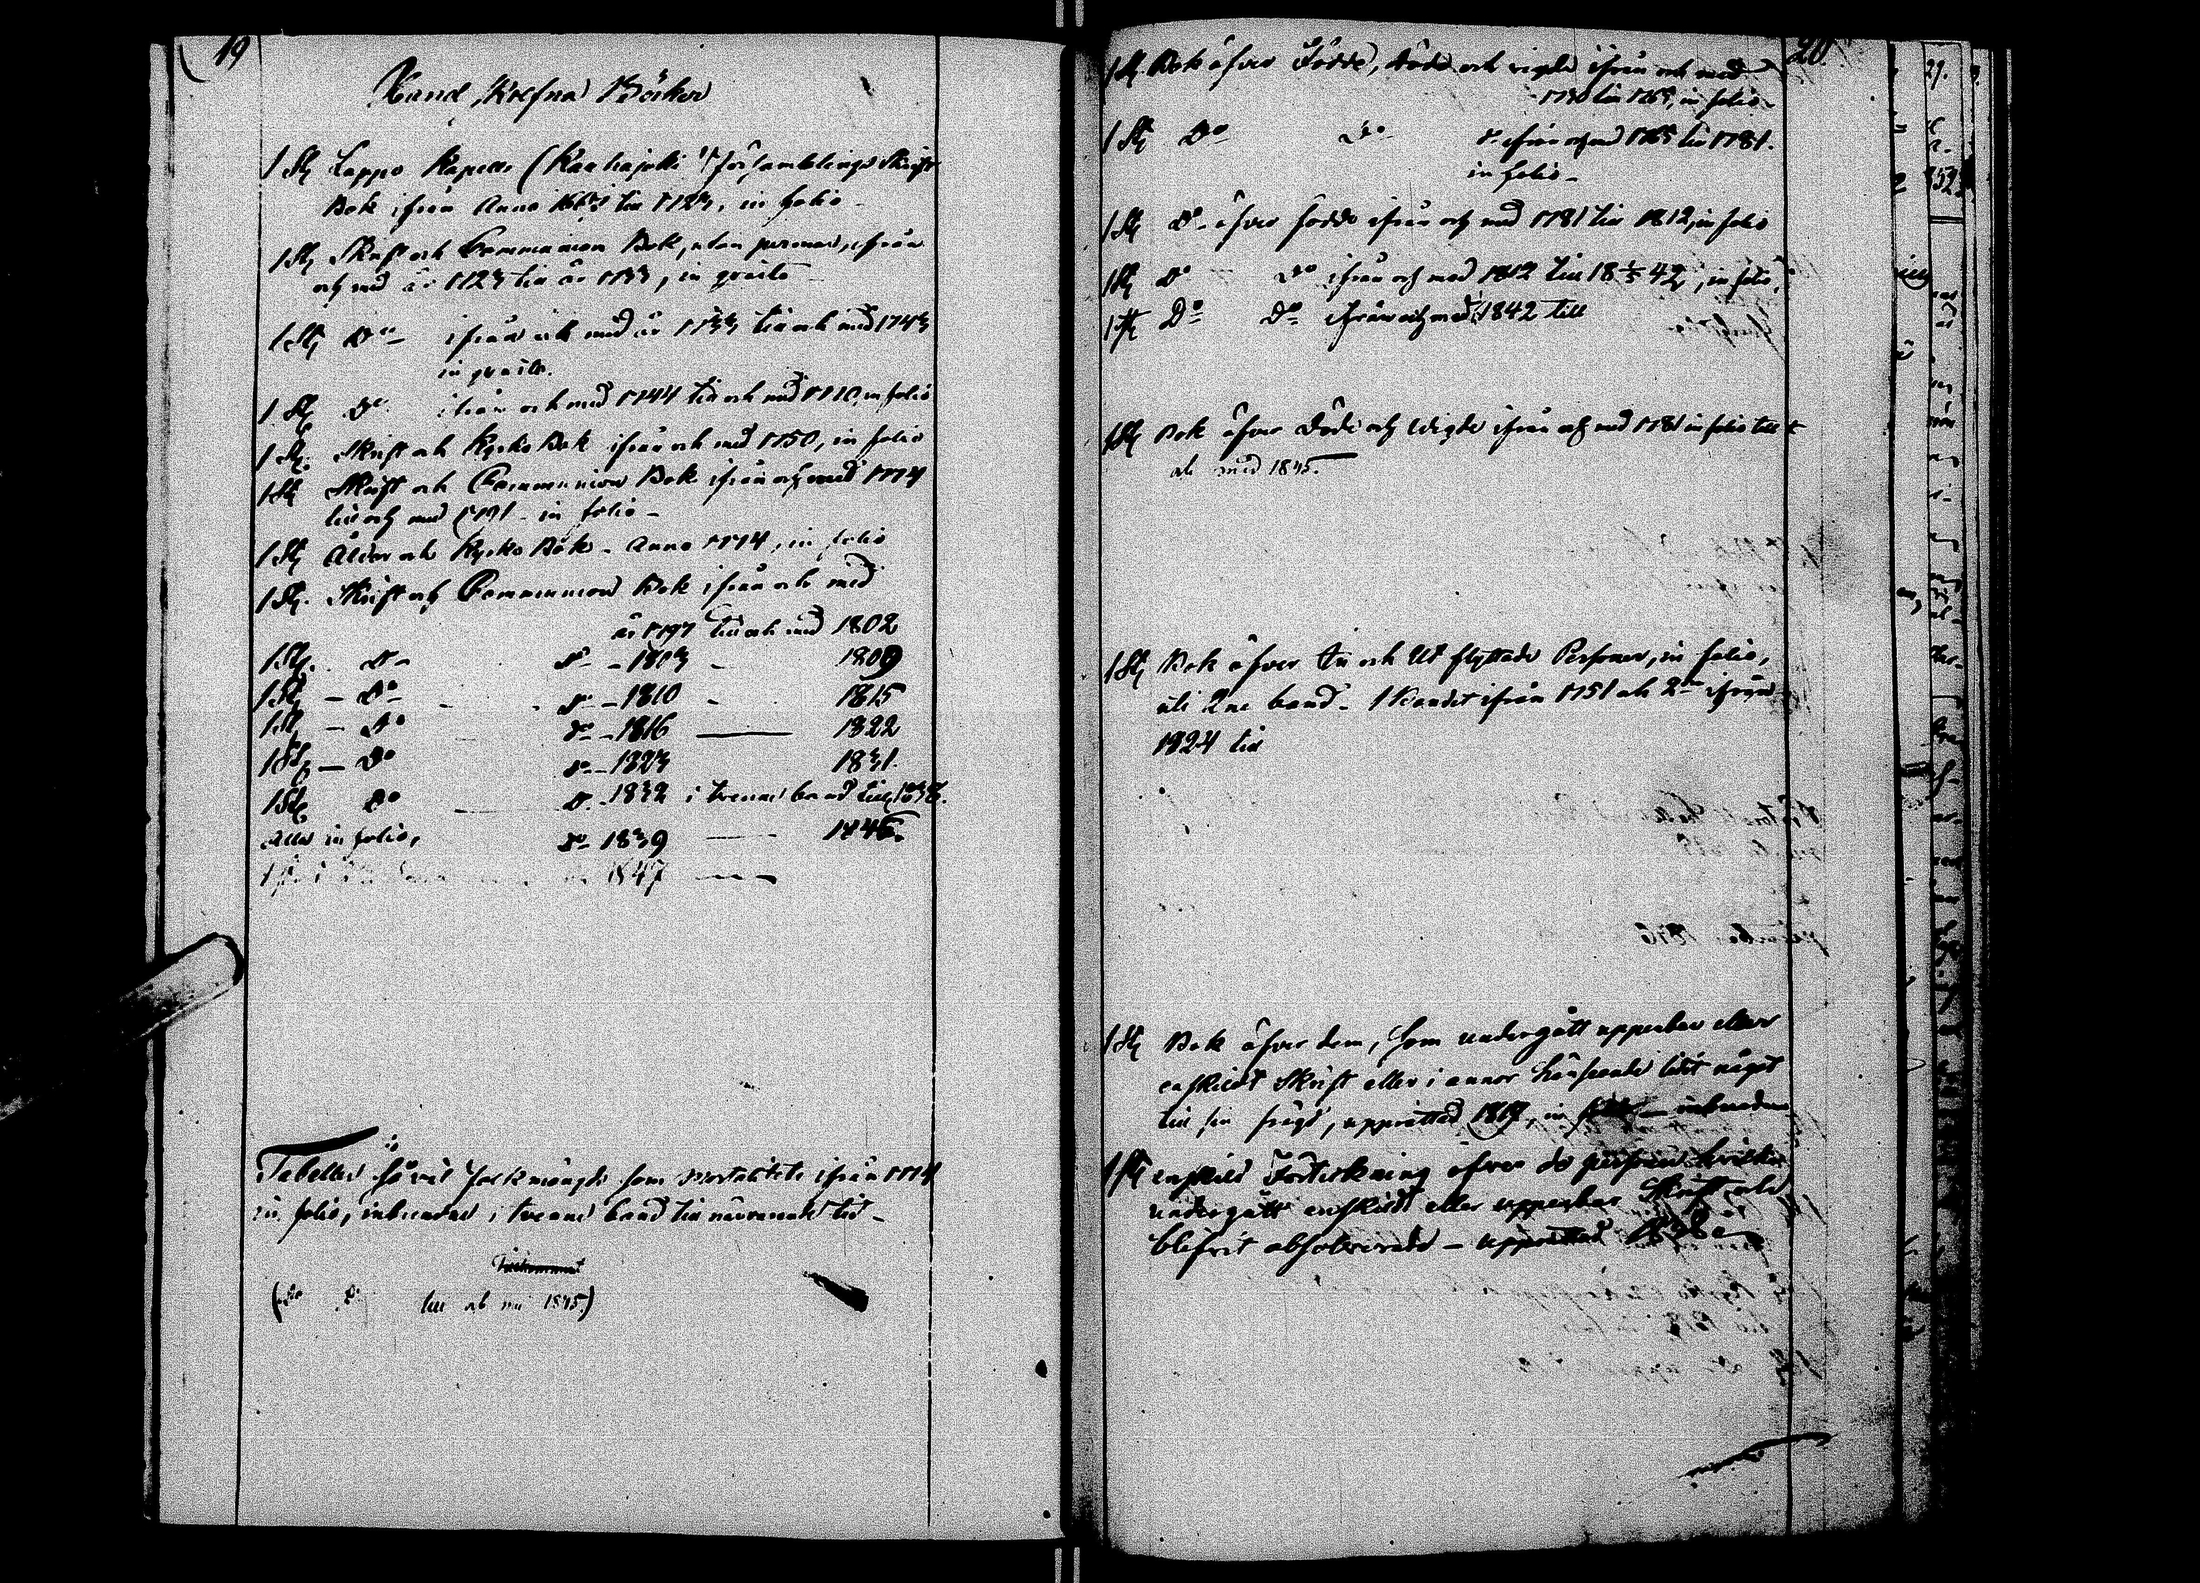 19
Hand Skrefna Böcker
1 St Lappo Kapells (Kauhajoki) församblings Skrift
Bok ifrån Anno 1667 till 1723, in folio
1 St Skrift och Communion Bok, utan permar, ifrån
och med år 1723 till år 1733, in quarto
1 St Do ifrån och med år 1733 till och med 1743
in quarto.
1 St Do ifrån och med 1744 till och med 1770, in folio
1 St. Skrift och Kyrko Bok ifrån och med 1750, in folio
1 St Skrift och Communion Bok ifrån och med 1774
till och med 1791 in folio
1 St Ålders och Kyrko Bok Anno 1774, in folio
1 St. Skrift och Communion Bok ifrån och med
år 1797 till och med 1802
1 St. Do do 1803 1809
1 St Do do 1810 1815
1 St Do do 1816 1822
1 St Do do 1823 1831.
1 St Do do 1832 i tvenne band till 1838.
alla in folio, do 1839 1846.
1847
Tabeller så väl folkmängds som Mortalitets ifrån 1774
in folio, inbundne i tvenne band till närvarande tid
(do do till och med 1845)
20.
1 St. Bok öfver Födde, döde och vigde ifrån och med
1730 till 1765, in folio
1 St Do Do ifrån och med 1765 till 1781.
in folio
1 St Do öfver födde ifrån och med 1781 till 1812, in folio
1 St Do Do ifrån och med 1812 till 1842, in folio,
1 St Do Do ifrån och med 1842 till
1 St Bok öfver Döde och Wigde ifrån och med 1781 in folio till
och med 1845.
1 St Bok öfver In och Ut flyttade Personer, in folio,
uti 2ne band. 1 Bandet ifrån 1751 och 2dra ifrån
1824 till
1 St Bok öfver dem, som undergått uppenbar eller
enskildt Skrift eller i annor hänseende lidit något
till sin frägd, upprättad 1817, in inbunden
1 St enskild Förteckning öfver de personer hvilka
undergått enskildt eller uppenbar Skrift och
blifvit absolverade – upprättad